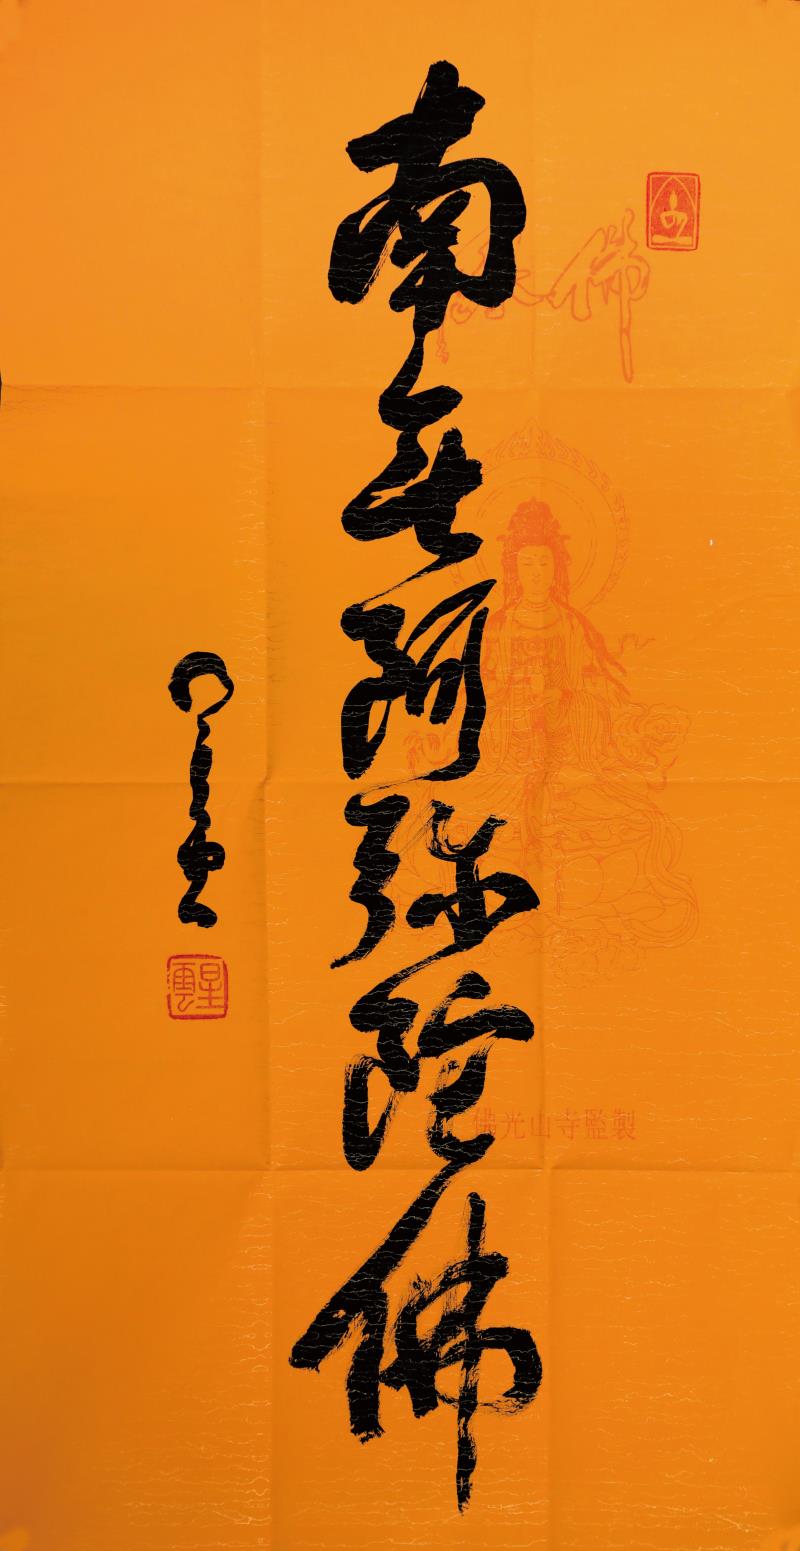 佛
南无阿弥陀佛
佛光山寺監製
星雲
星雲